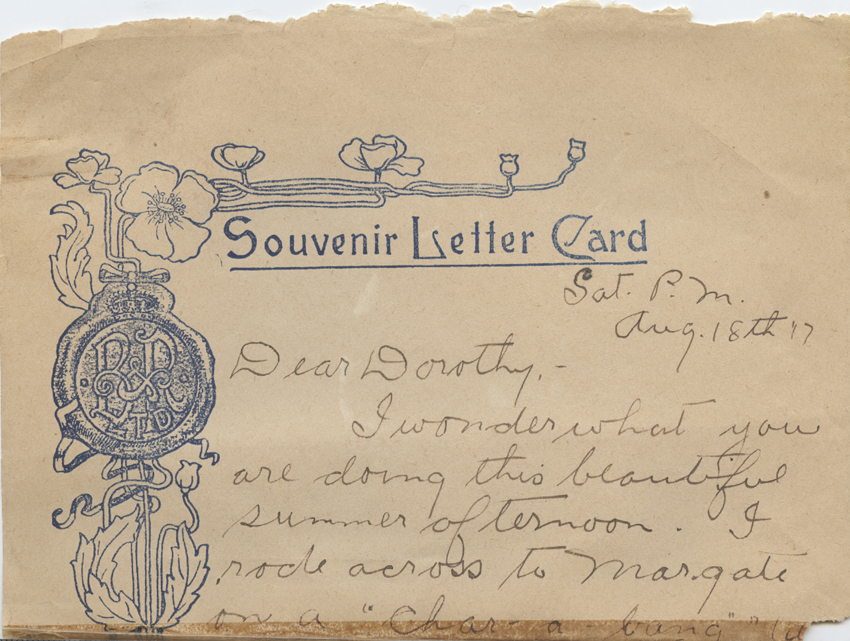 Souvenir Letter Card
Sat. P.M.
Aug. 18th '17
Dear Dorothy,-
I wonder what you
are doing this beautiful
summer afternoon. I
rode across to Margate
on a "Char-a-bang"
LTD